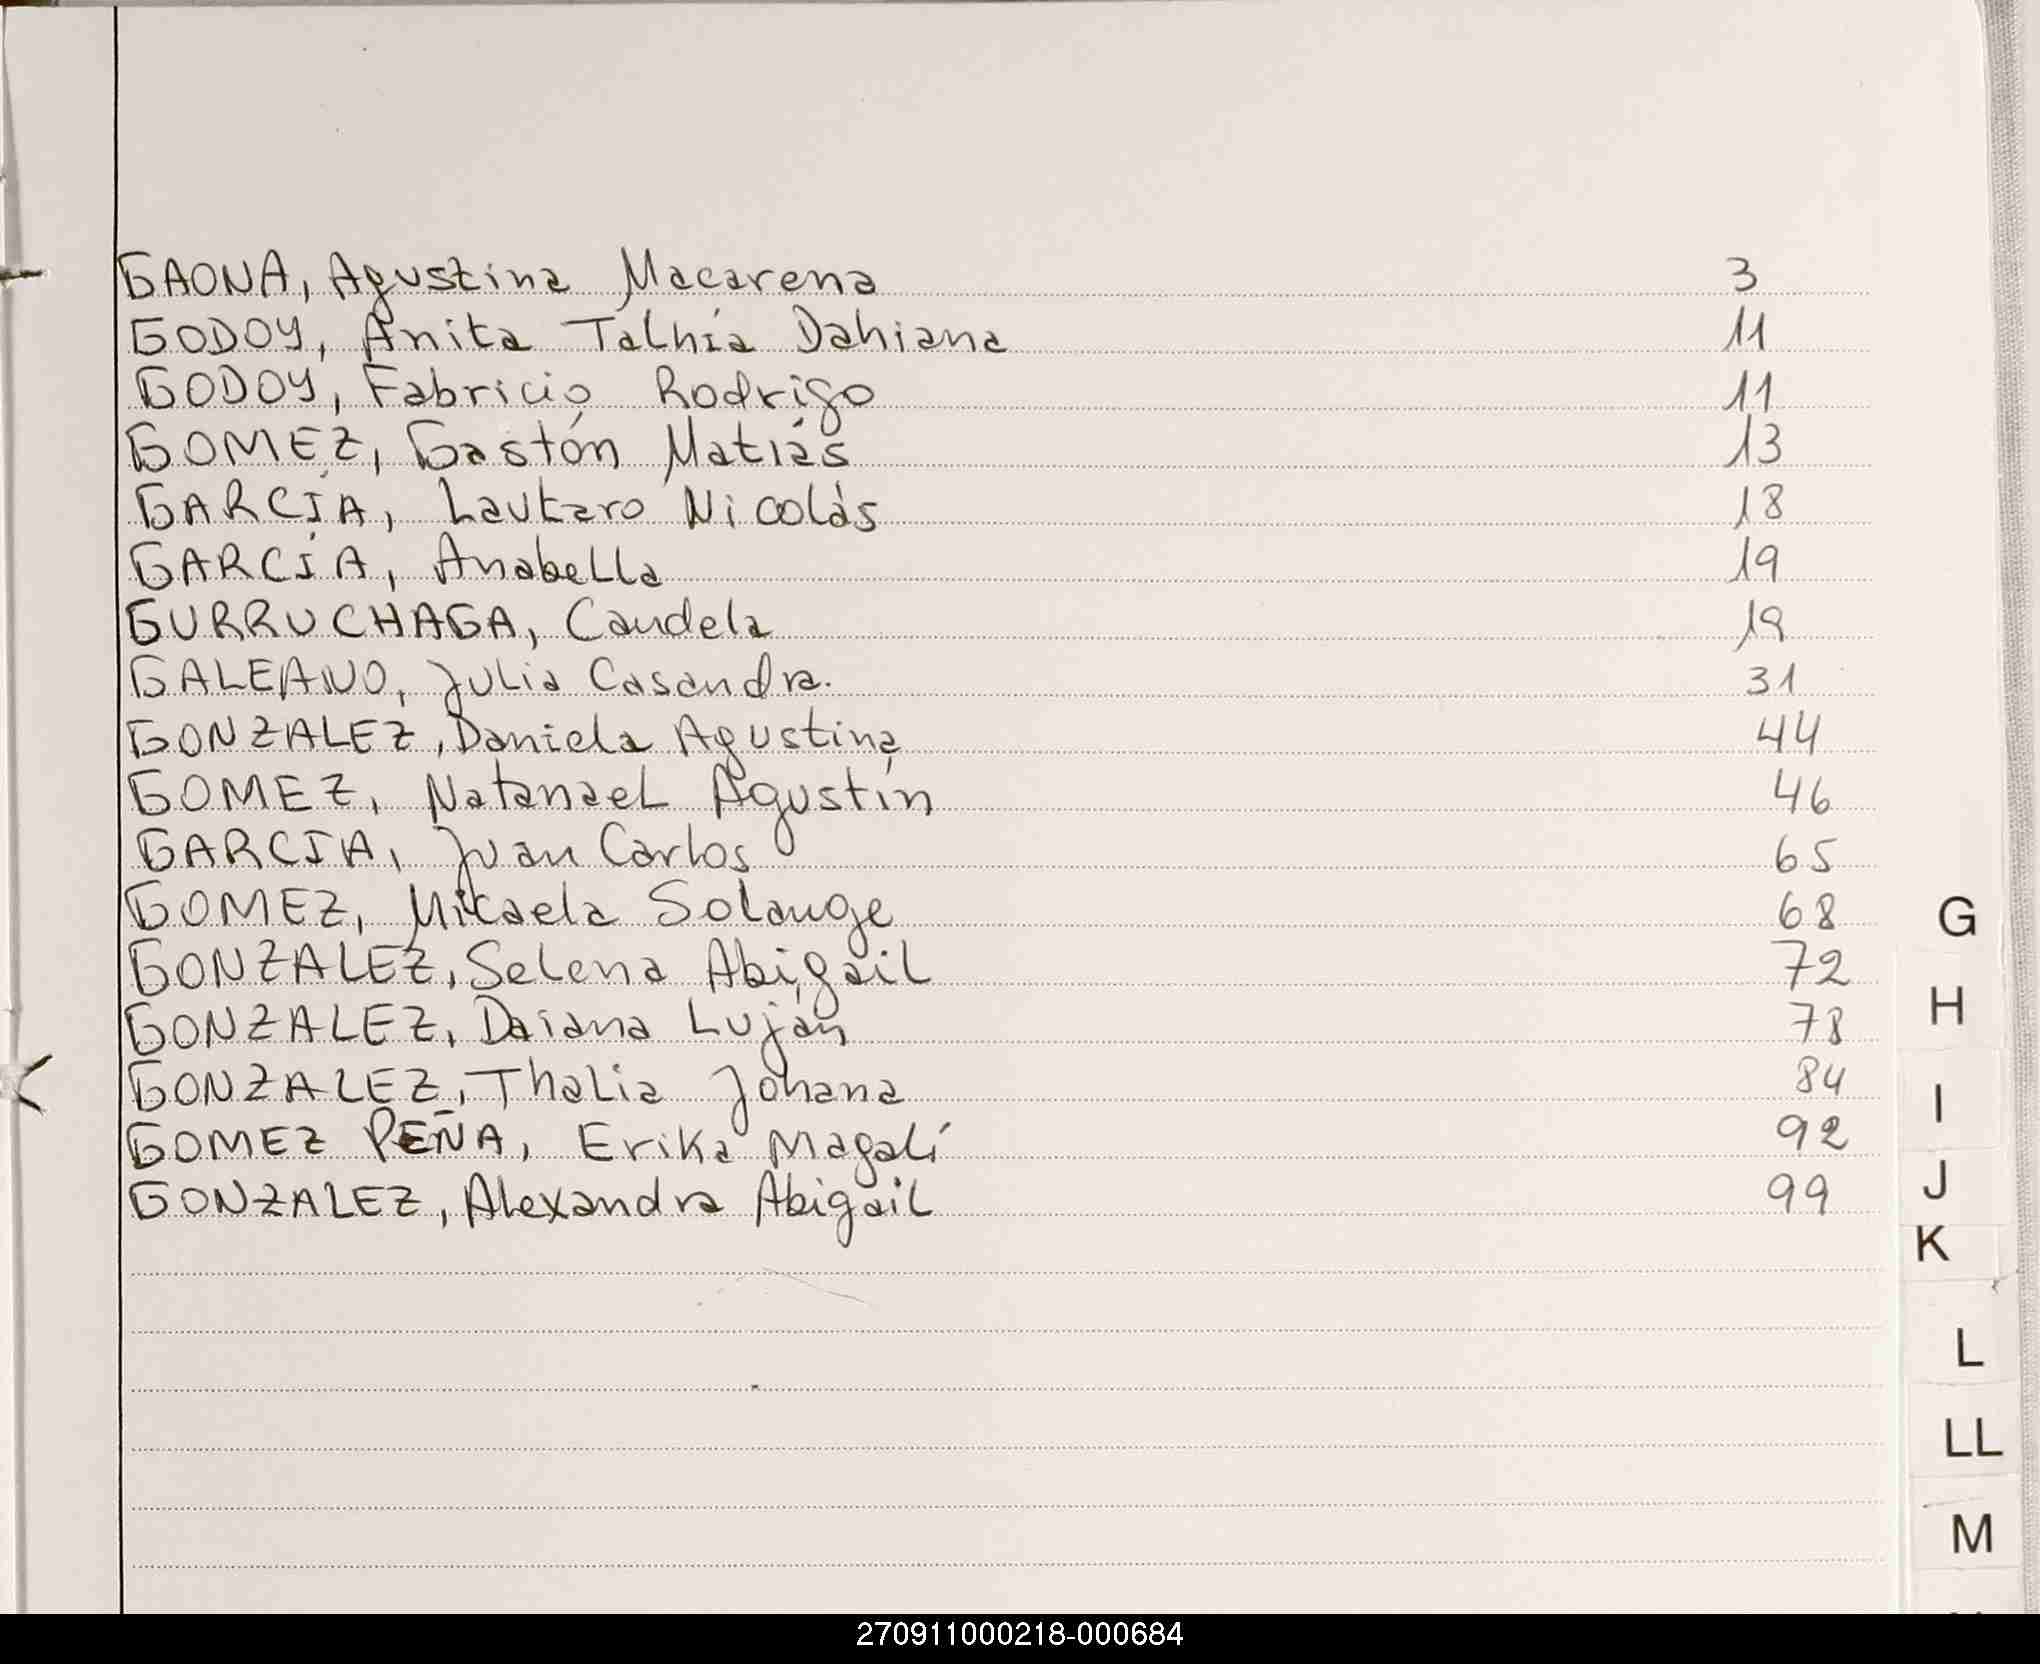 GAONA, Agustina Macarena 3
GODOY, Anita Talhía Dahiana 11
GODOY, Fabricio Rodrigo 11
GOMEZ, Gastón Matías 13
GARCÍA, Lautaro Nicolás 18
GARCÍA, Anabella 19
GURRUCHAGA, Candela 19
GALEANO, Julia Casandra. 31
GONZALEZ, Daniela Agustina 44
GOMEZ, Natanael Agustín 46
GARCIA, Juan Carlos 65
GOMEZ, Mikaela Solange 68
GONZALEZ, Selena Abigail 72
GONZALEZ, Daiana Luján 78
GONZALEZ, Thalia Johana 84
GOMEZ PEÑA, Erika Magalí 92
GONZALEZ, Alexandra Abigail 99
G
H
I
J
K
L
LL
M
270911000218-000684